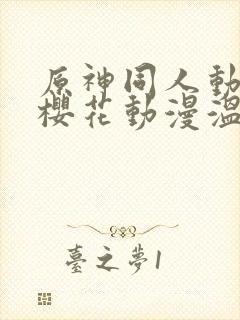 原神同人動
櫻花動漫溫
臺之夢1